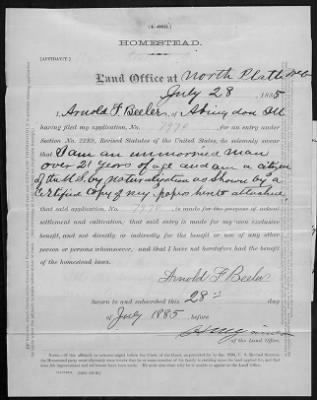 HOMESTEAD.
(AFFIDAVIT.)
Land Office at North Platte Neb
July 28, 1885
I, Arnold F. Beeler, of Abingdon Ill
having filed my application, No. 7970 for an entry under
Section No. 2289, Revised Statutes of the United States, do solemnly swear that
I am an unmarried man
over 21 years of age and am a citizen
of the U.S. by naturalization as shown by a
Certified Copy of my papers hereto attached,
that said application, No. 7970 is made for the purpose of actual
settlement and cultivation; that said entry is made for my own exclusive
benefit, and not directly or indirectly for the benefit or use of any other
person or persons whomsoever, and that I have not heretofore had the benefit
of the homestead laws.
Arnold F Beeler
Sworn to and subscribed this 28th day
of July 1885, before
of the Land Office.